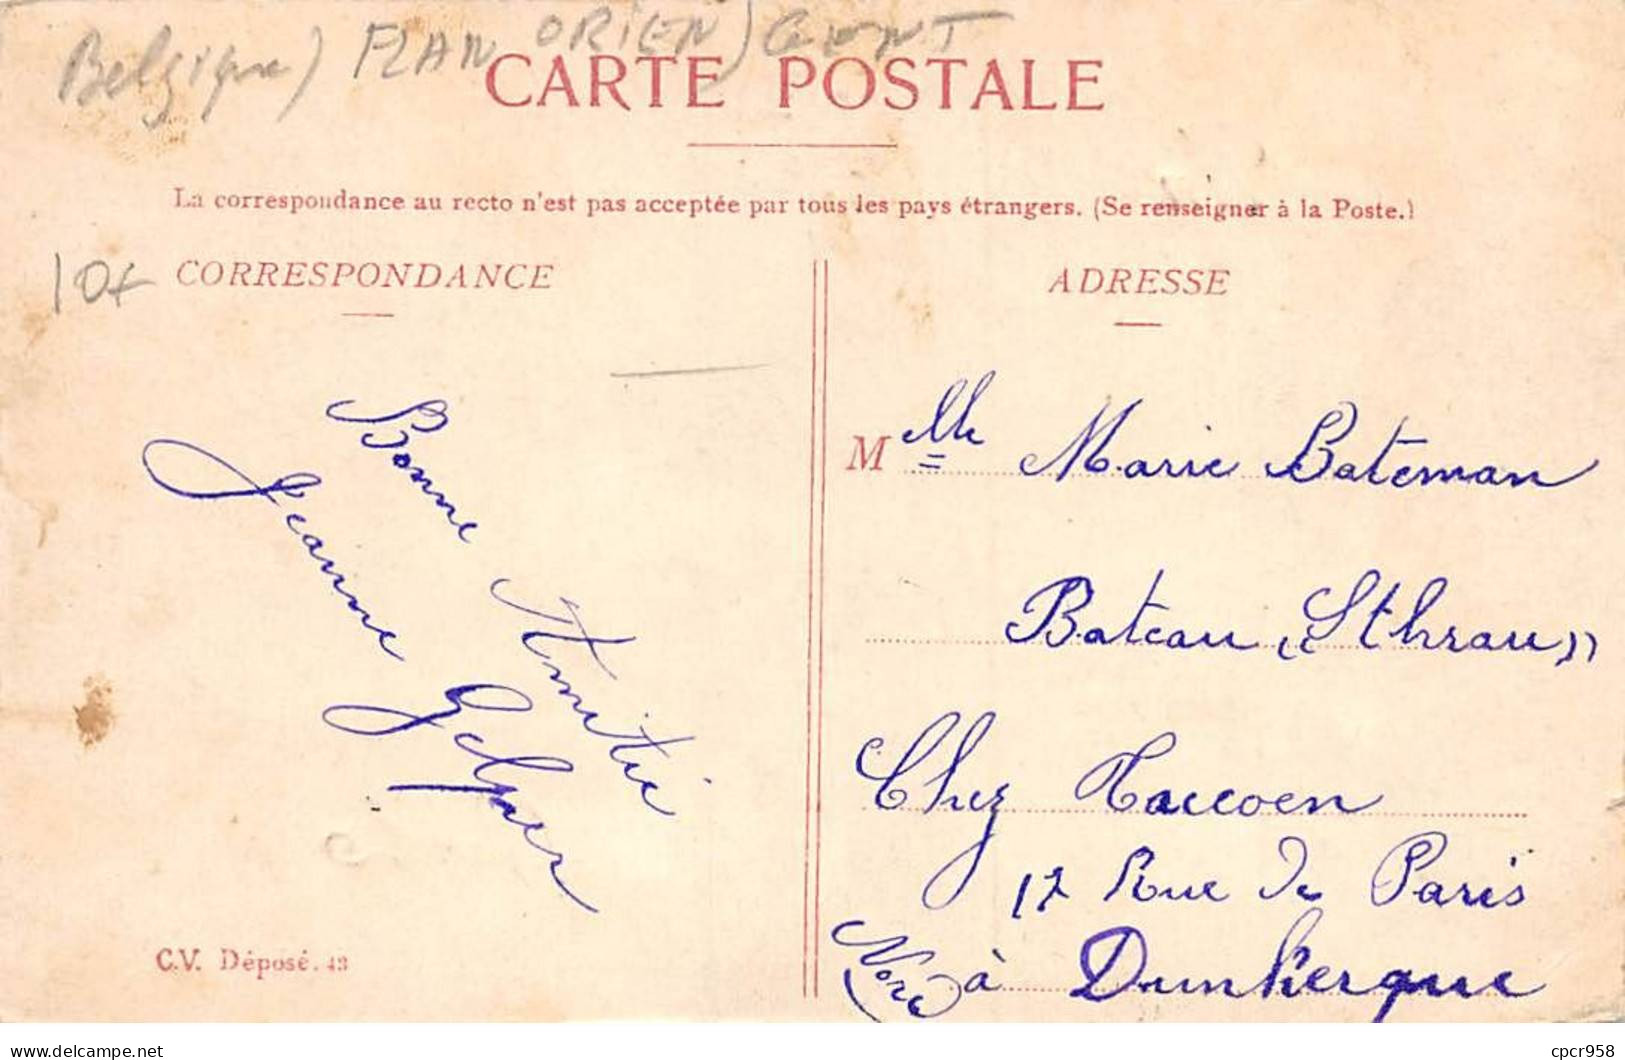 Belgique) FLAN ORIEN) GENT
CARTE POSTALE
La correspondance au recto n'est pas acceptée par tous les pays étrangers. (Se renseigner à la Poste.)
10€
CORRESPONDANCE
Bonne Amitié
Jeanne
ADRESSE
Mlle Marie Bateman
Bateau "Sthrau"
Chez Taccoen
17 Rue de Paris
à Dunkerque
(Nord)
C.V. Déposé. 43
www.delcampe.net
cpcr958